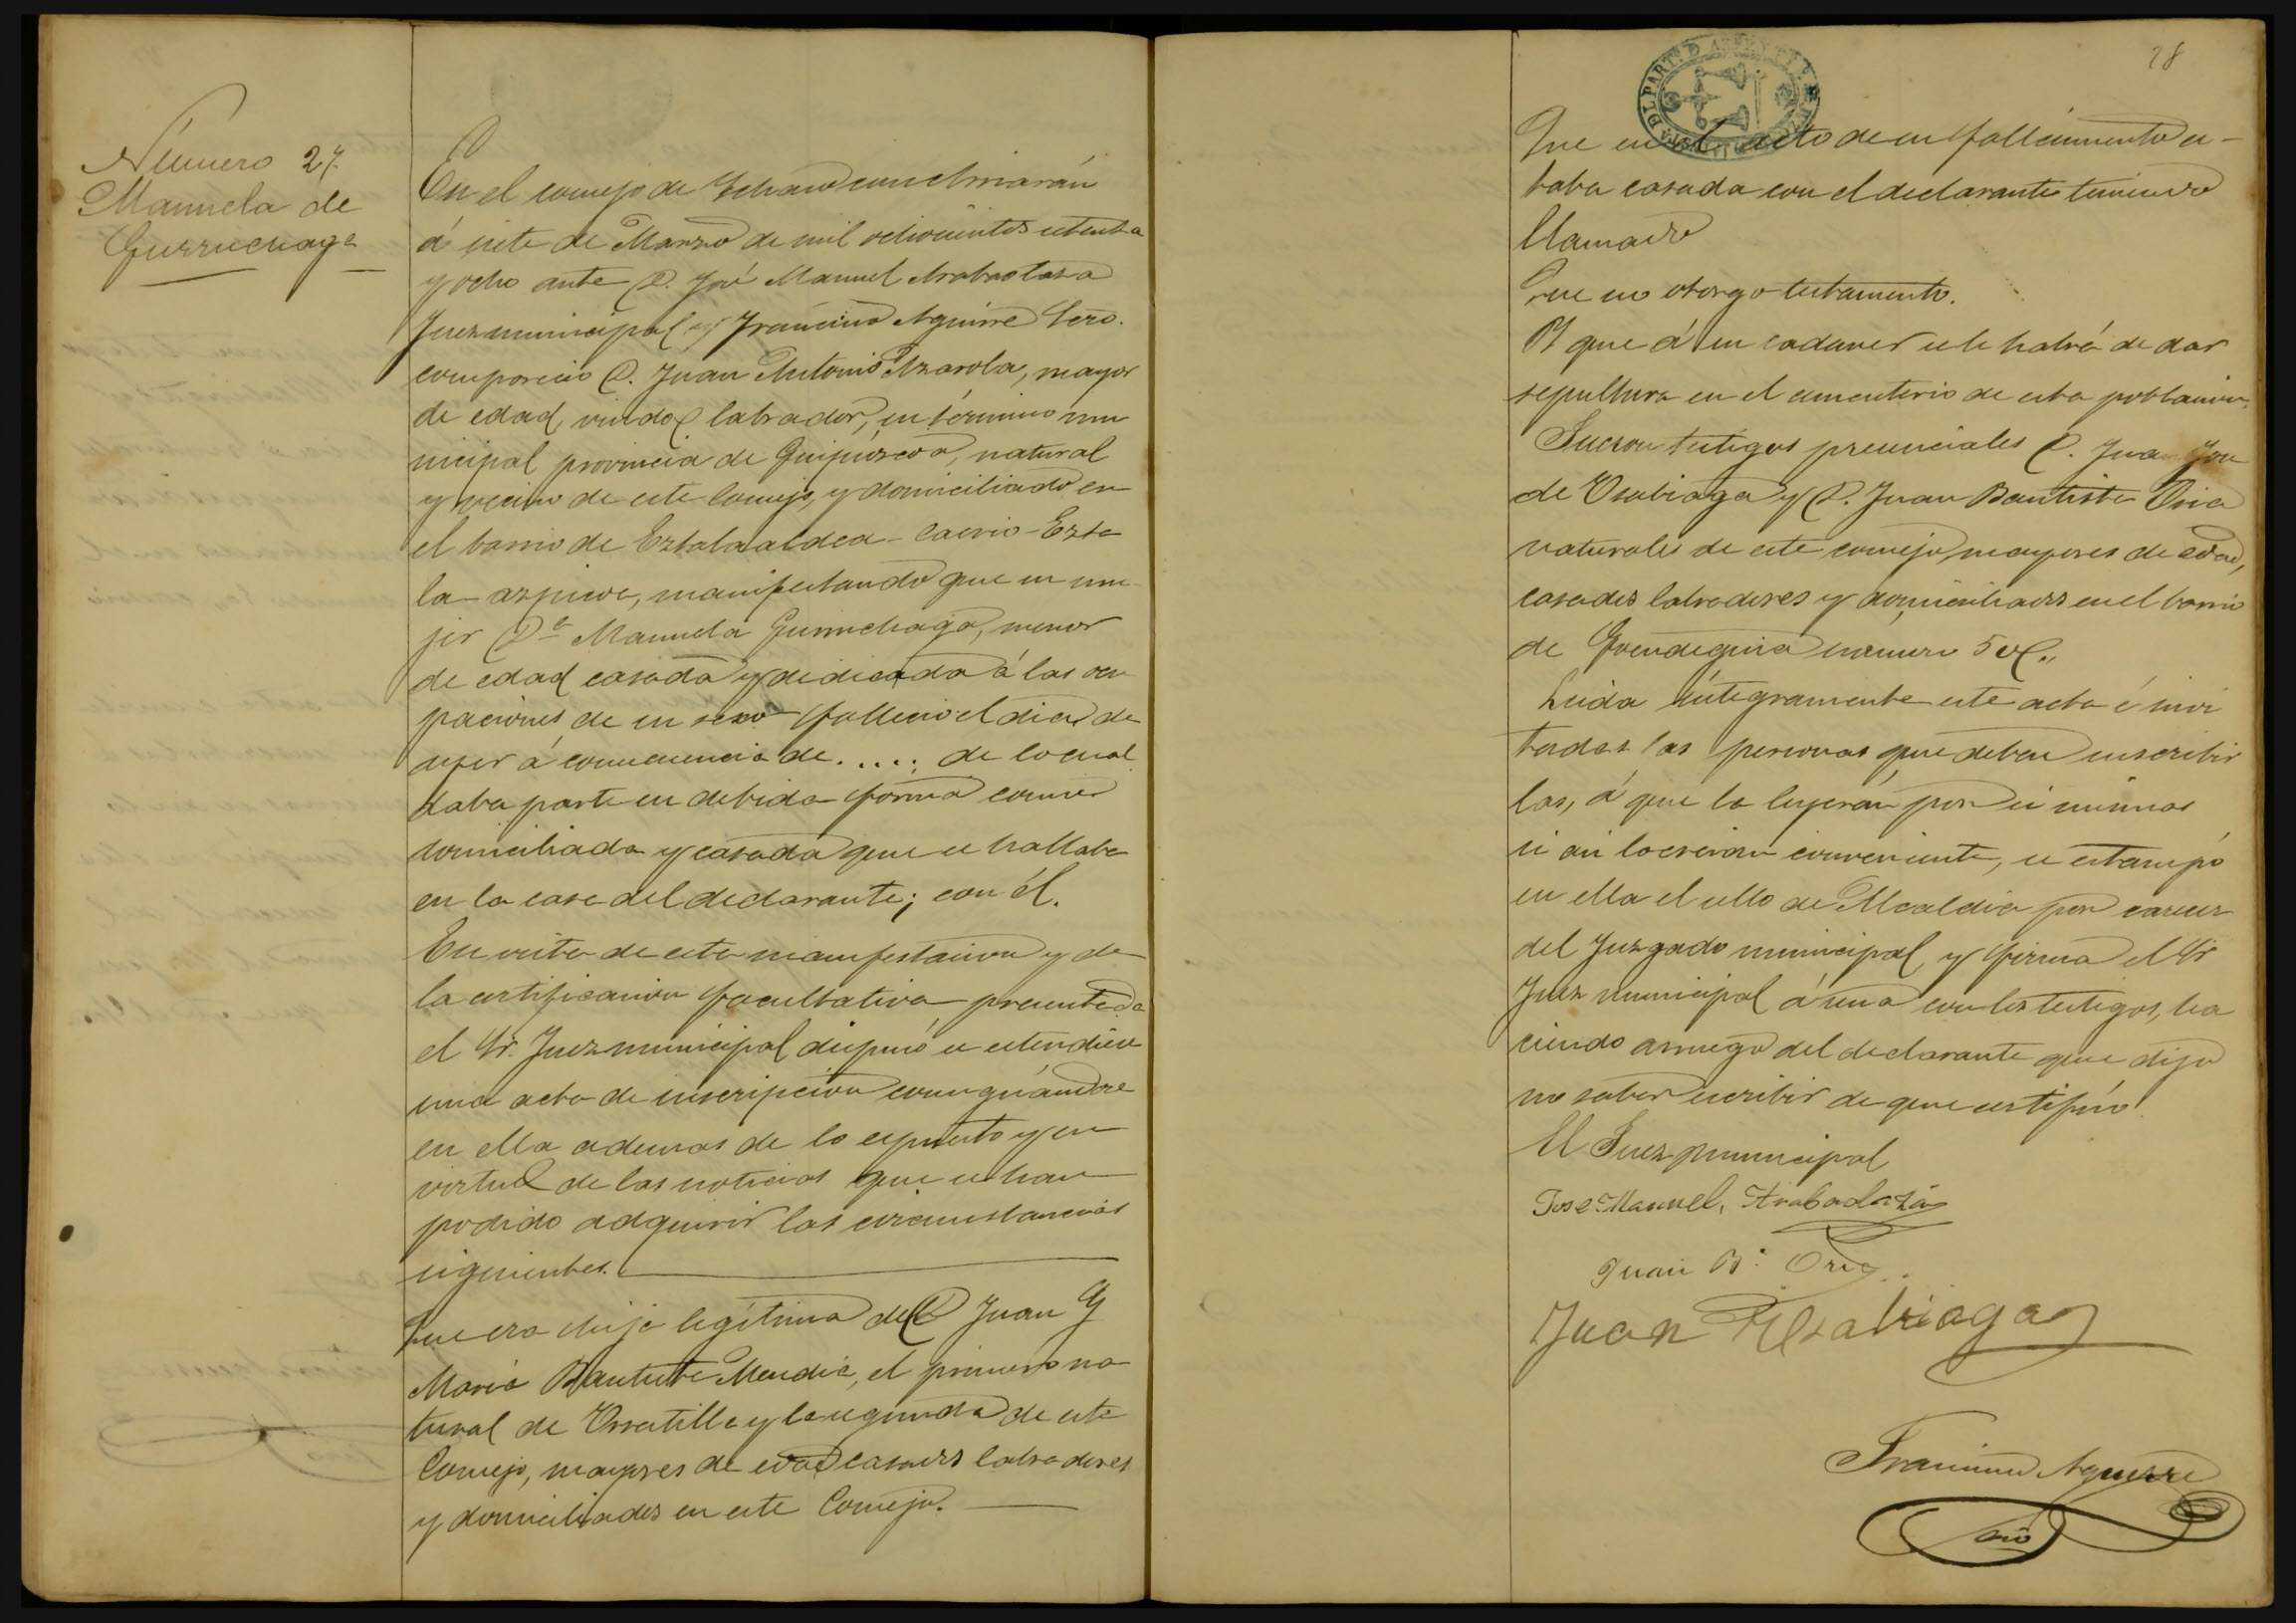 Número 27.
Manuela de
Gurruchaga
En el concejo de
á siete de Marzo de mil ochocientos setenta
y ocho ante D. José Manuel Arabaolaza
Juez municipal y Francisco Aguirre Serio.
comparecio D. Juan Antonio Azarola, mayor
de edad, viudo, labrador, en término mu
nicipal provincia de Guipúzcoa, natural
y vecino de este Concejo, y domiciliado en
el barrio de Eztala aldea - Caserio - Ezta
la azpicoa, manifestando que su mu
jer D.ª Manuela Gurruchaga, menor
de edad casada y dedicada á las ocu
paciones de su sexo falleció el dia de
ayer á consecuencia de ..... de lo cual
daba parte en debida forma como
domiciliada y casada que se hallaba
en la casa del declarante; con él.
En vista de esta manifestacion y de
la certificacion facultativa presentada
el Sr. Juez municipal dispuso se estendiese
una acta de inscripcion consignándose
en ella ademas de lo espuesto y en
virtud de las noticias que se han
podido adquirir las circunstancias
siguientes.
Que era hija legítima de D Juan y
Maria Bautista Mendia, el primero na
tural de y la segunda de este
Concejo, mayores de edad casados labradores
y domiciliados en este Concejo.
28
Que en el acto de su fallecimiento es-
taba casada con el declarante teniendo
llamado
Que no otorgo testamento.
Y que á su cadaver se le habrá de dar
sepultura en el cementerio de esta poblacion.
Fueron testigos presenciales D. Juan José
de Usabiaga y D. Juan Bautista Oria
naturales de este concejo, mayores de edad,
casados labradores y domiciliados en el barrio
de Goendeguia numero 5
Leida íntegramente este acta é invi
tadas las personas que deben suscribir
las, á que la leyeran por si mismas
si asi lo creian conveniente, se estampó
en ella el sello de Alcaldia por carecer
del Juzgado municipal, y firma el Sr
Juez municipal á una con los testigos, ha
ciendo arruego del declarante que dijo
no saber escribir de que certifico.
El Juez municipal
Jose Manuel, Arabaolaza
Juan B.ª Oria
Juan Usabiaga
Francisco Aguirre
srio